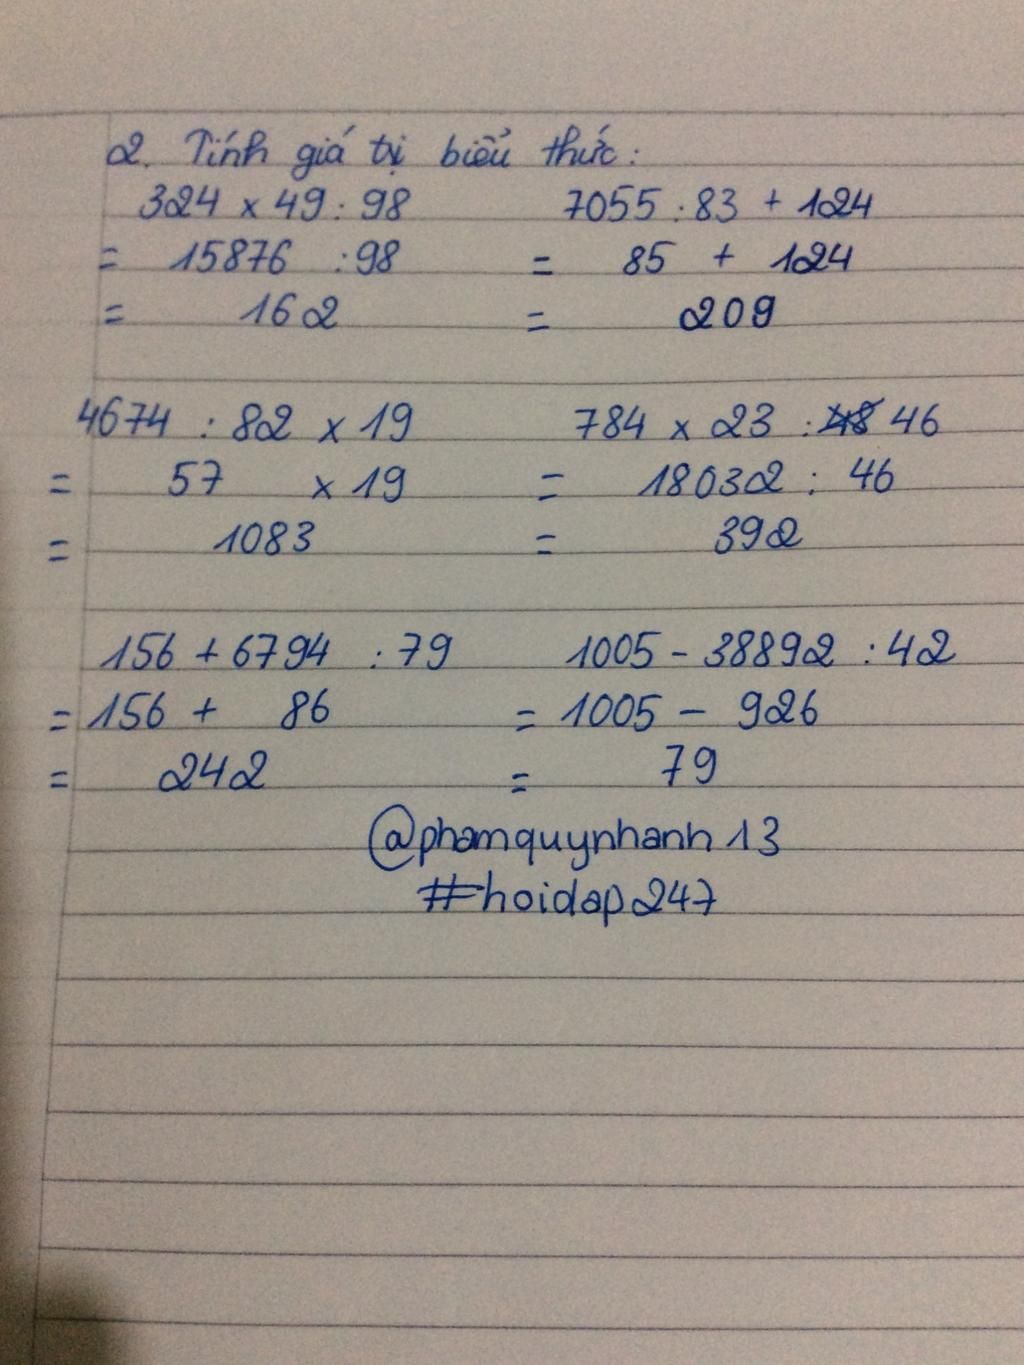 2. Tính giá trị biểu thức:
324 x 49 : 98 7055 : 83 + 124
= 15876 : 98 = 85 + 124
= 162 = 209
4674 : 82 x 19 784 x 23 : 46
= 57 x 19 = 18032 : 46
= 1083 = 392
156 + 6794 : 79 1005 - 38892 : 42
= 156 + 86 = 1005 - 926
= 242 = 79
@phamquynhanh13
#hoidap247